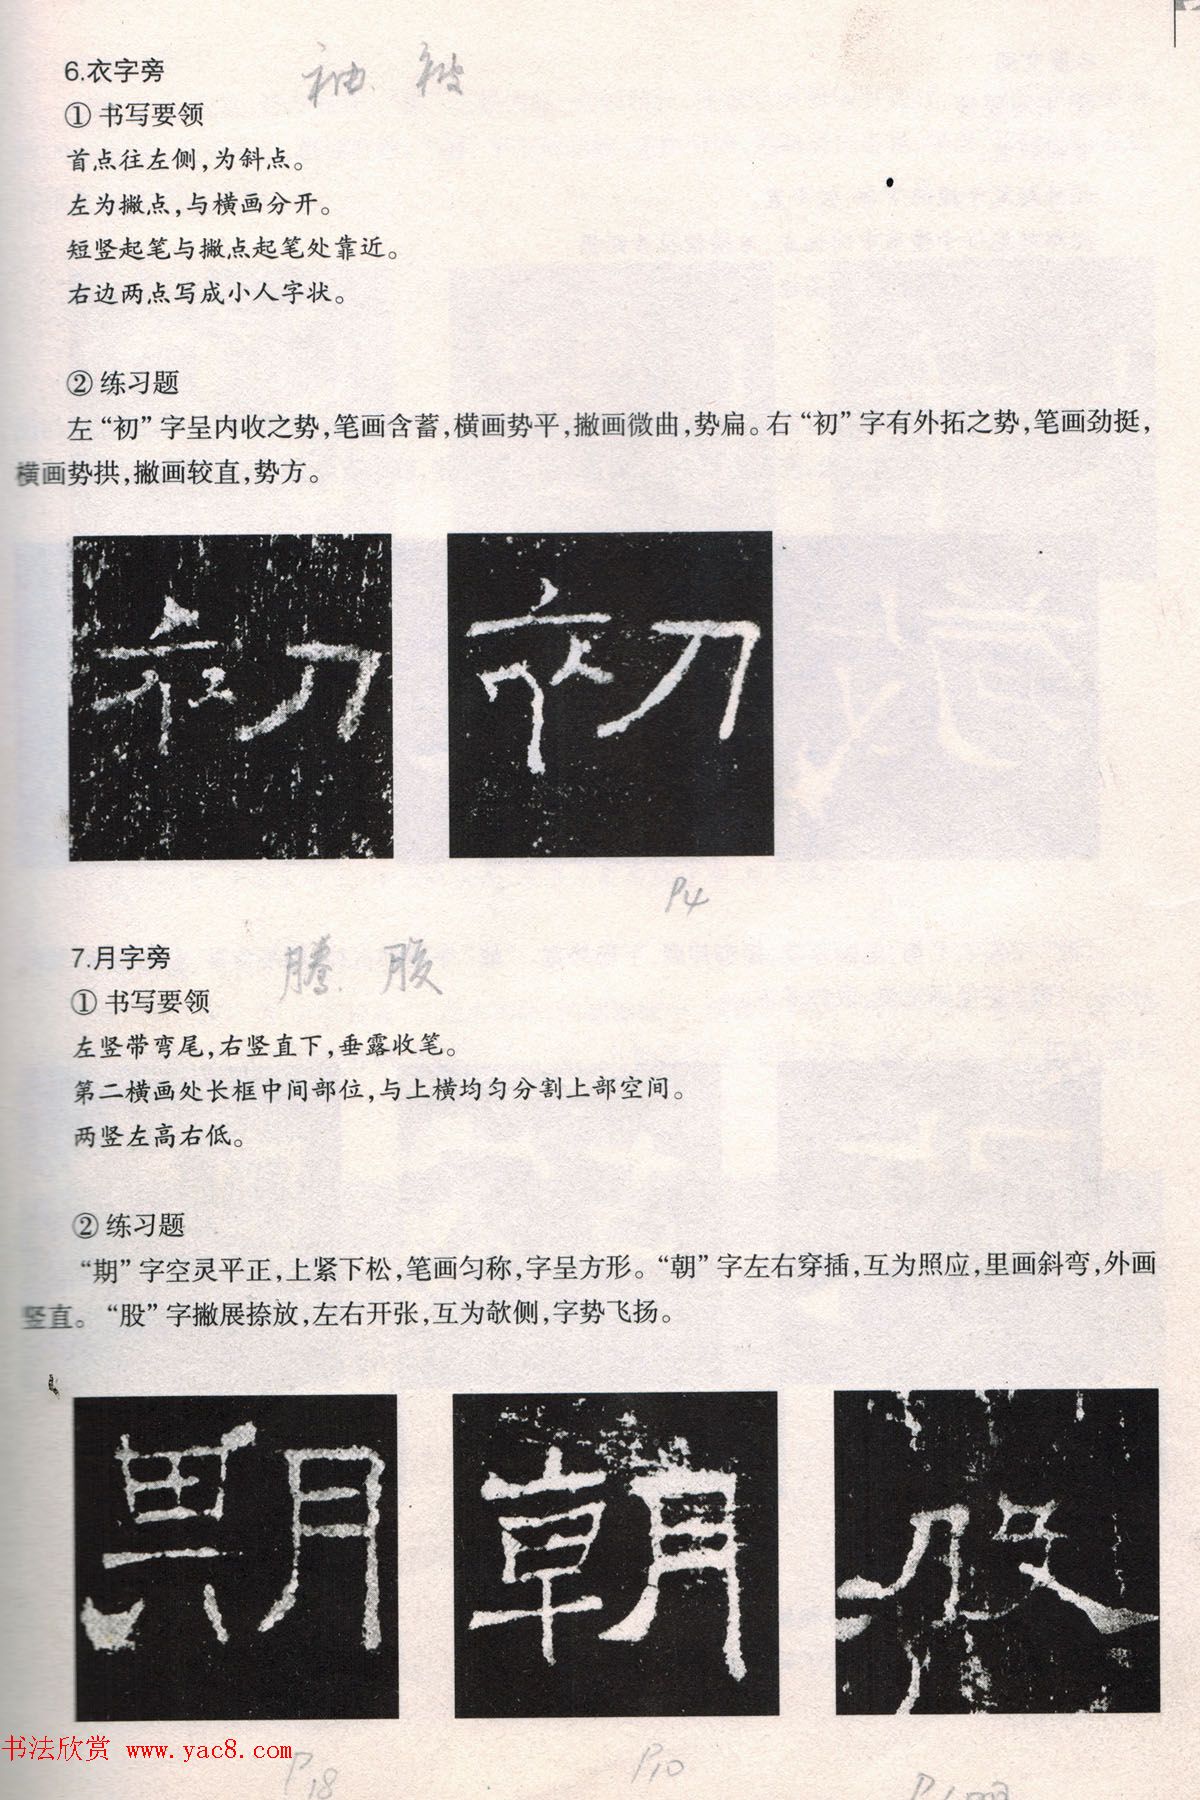 6.衣字旁 袖、被
① 书写要领
首点往左侧，为斜点。
左为撇点，与横画分开。
短竖起笔与撇点起笔处靠近。
右边两点写成小人字状。
② 练习题
左“初”字呈内收之势，笔画含蓄，横画势平，撇画微曲，势扁。右“初”字有外拓之势，笔画劲挺，
横画势拱，撇画较直，势方。
初 初
P4
7.月字旁 腾、腹
① 书写要领
左竖带弯尾，右竖直下，垂露收笔。
第二横画处长框中间部位，与上横均匀分割上部空间。
两竖左高右低。
② 练习题
“期”字空灵平正，上紧下松，笔画匀称，字呈方形。“朝”字左右穿插，互为照应，里画斜弯，外画
竖直。“股”字撇展捺放，左右开张，互为欹侧，字势飞扬。
期 朝 股
书法欣赏 www.yac8.com
P18 P10